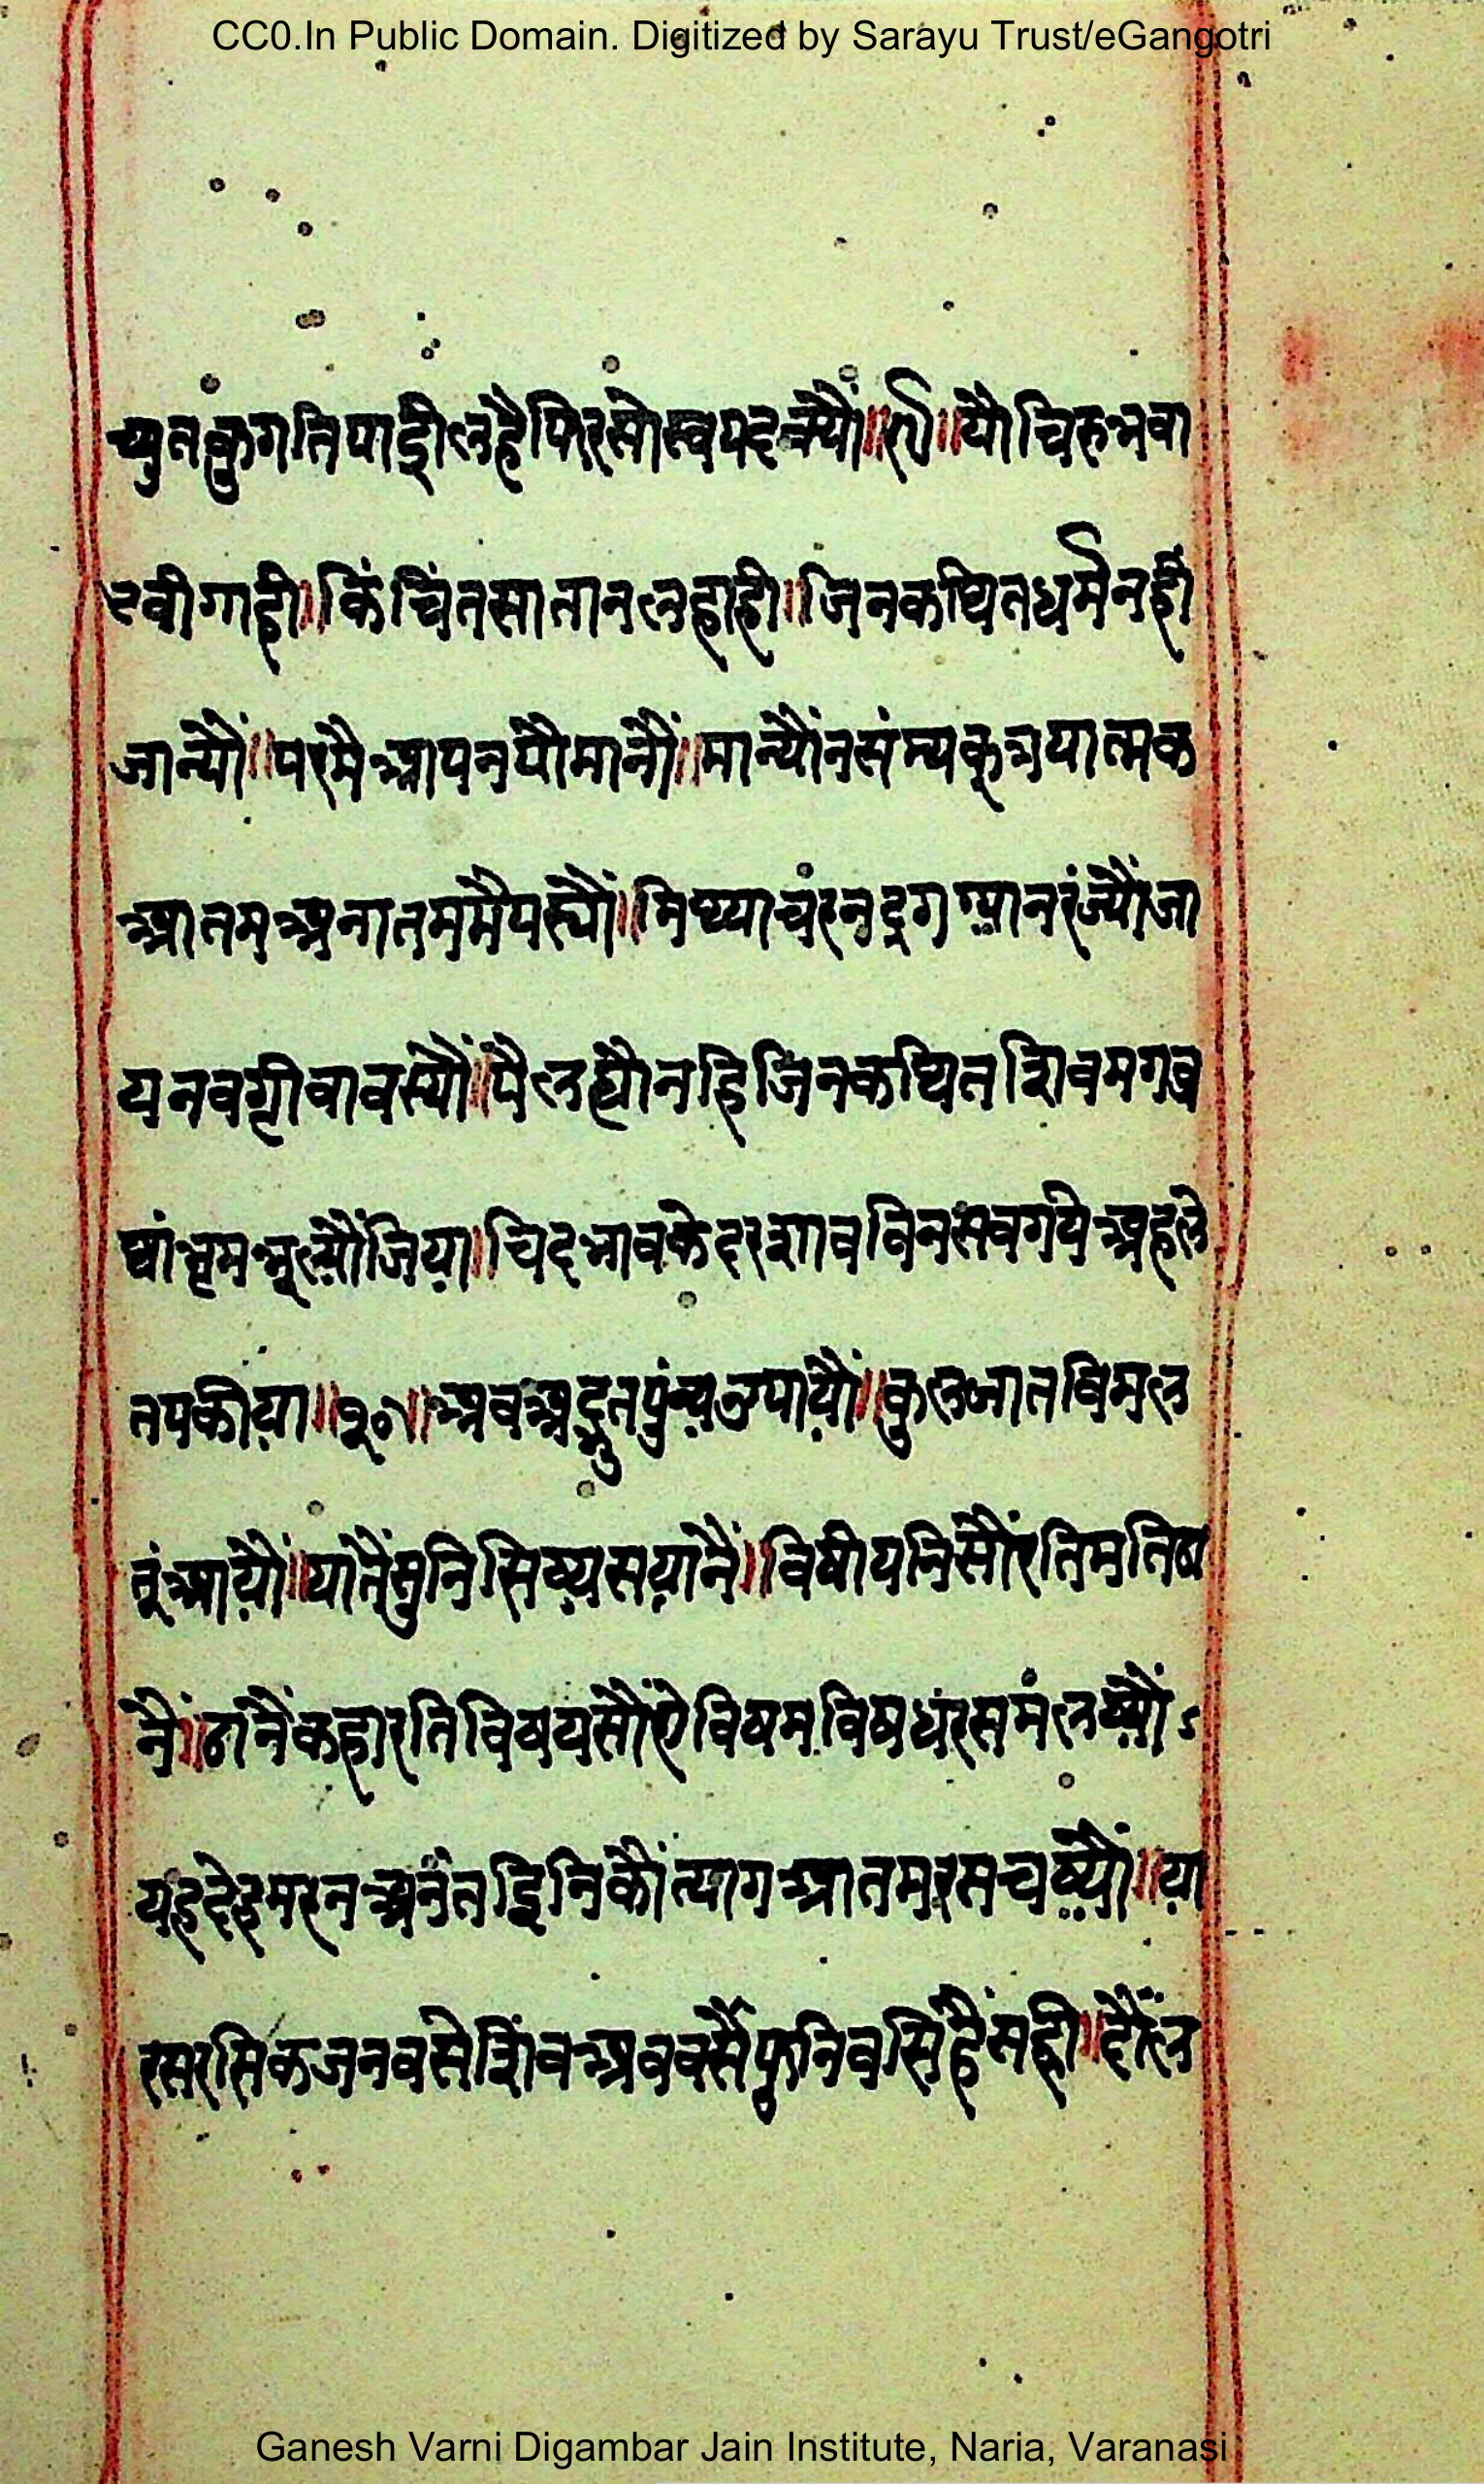 CC0.In Public Domain. Digitized by Sarayu Trust/eGangotri
च्युतकुगतिपाद्दीलहैफिरसोस्वपदच्यौं॥९॥यौचिरुभवा
टवीगाही॥किंचिंतसातानलहाही॥जिनकथितधर्मनही
जान्यौं॥परमैआपनपौमानौं॥मान्यौंनसंम्यकत्रयात्मक
आतमअनातममैपस्यौं॥मिथ्याचंरनदृगग्यानरंज्यौंजा
यनवग्रीवावस्यौं॥पैलह्यौनहिजिनकथितशिवमगवृ
थांभ्रमभूल्यौंजिया॥चिदभावकेदरशावविनसवगयेअहले
तपकीया॥१०॥अवअद्भुतपुंन्यउपायौं॥कुलजातविमल
तूंआयौं॥यातैंसुनिसिष्यसयानैं॥विषीयनिसौंरतिमतिठा
नैं॥ठानैंकहारतिविषयसौंऐविषमविषधंरसमंलष्यौं
यहदेहमरनअनंतइनिकौंत्यागआतमरसचष्यौं॥या
रसरसिकजनवसेशिवअववसैंफुनिवसिहैंसही॥दौल
Ganesh Varni Digambar Jain Institute, Naria, Varanasi